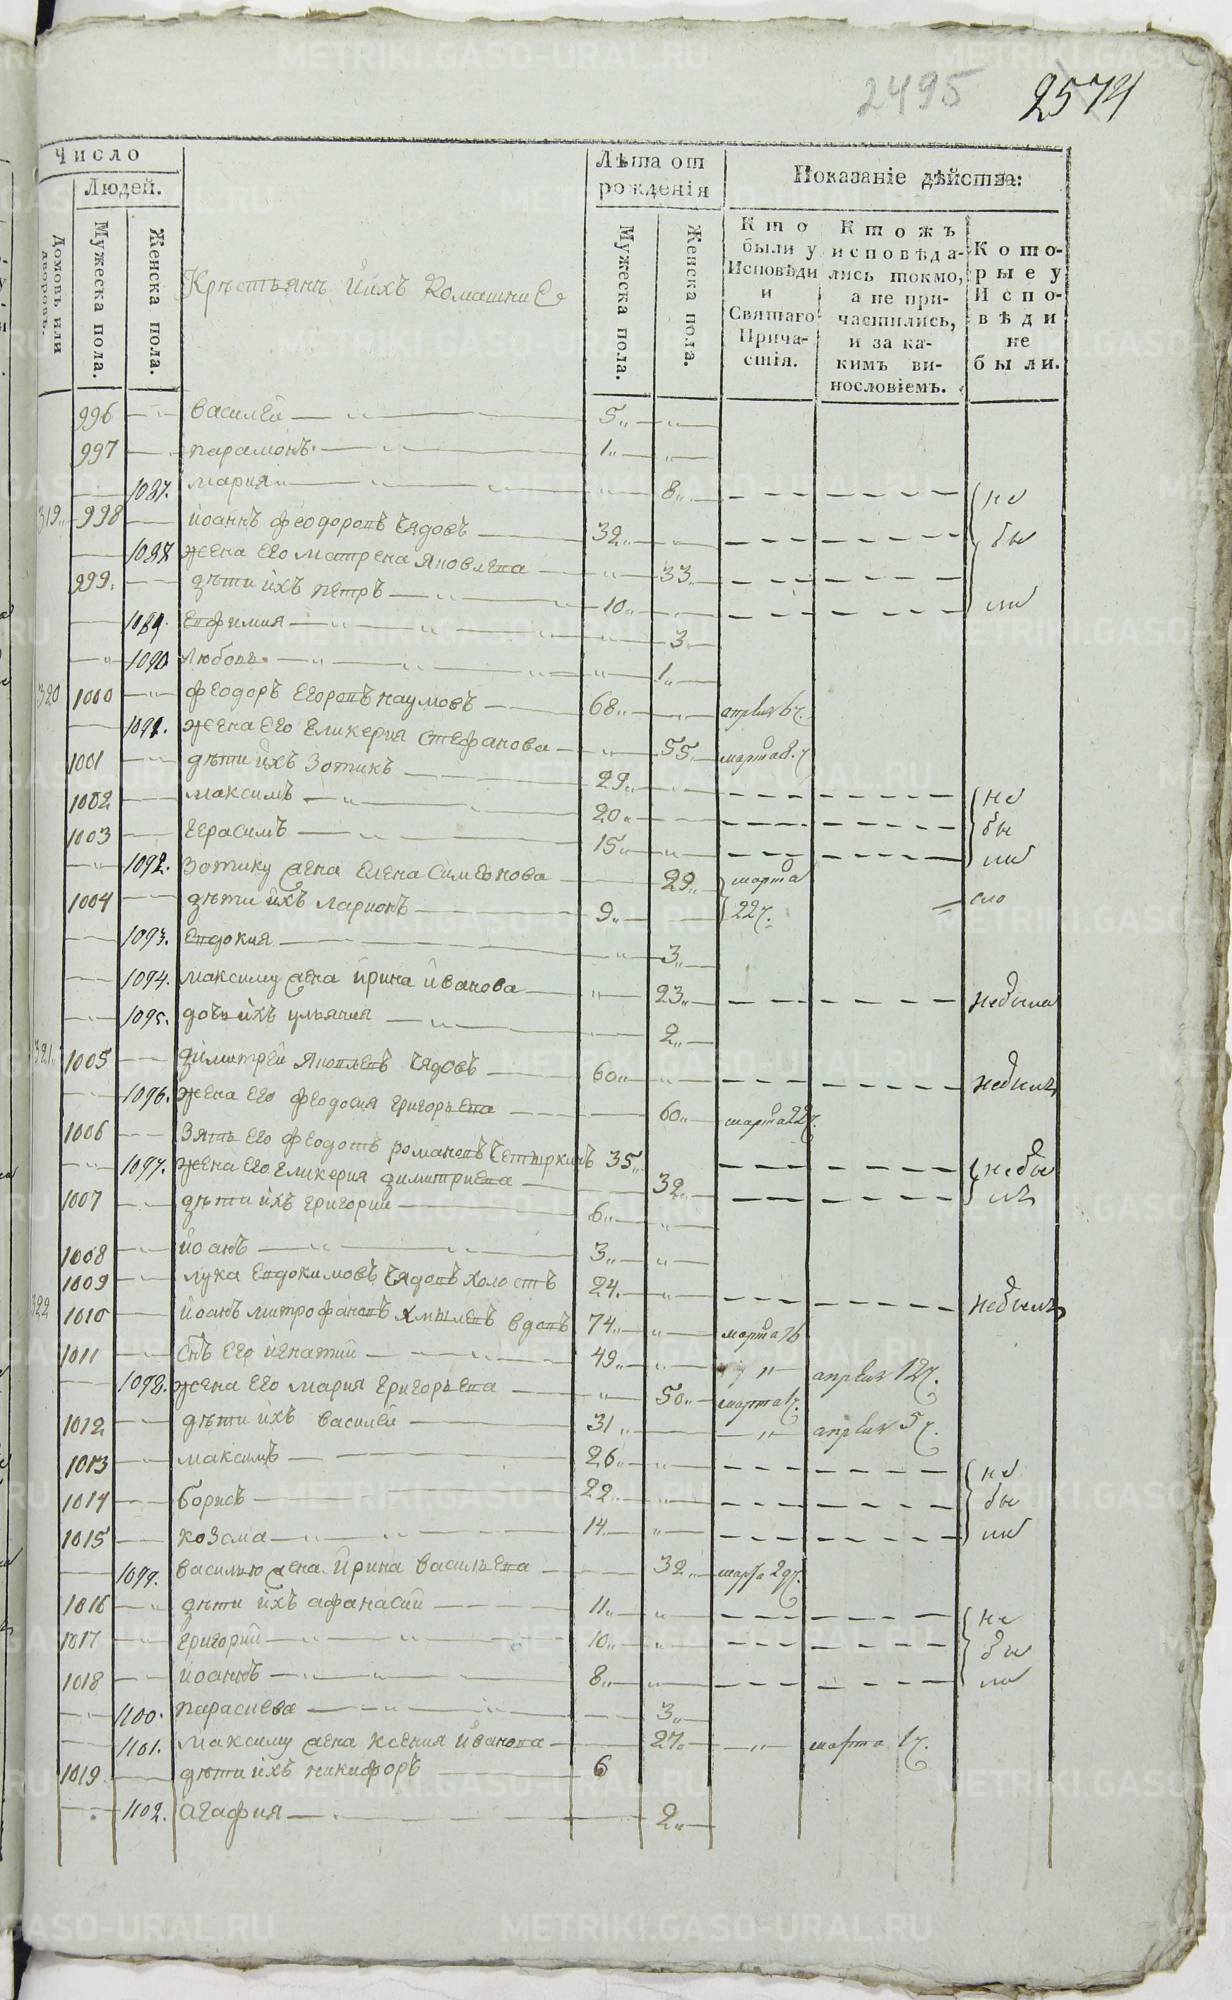 2495 2574
Число
Людей.
Лѣта от рожденія
Показаніе дѣйства:
Домовъ или дворовъ.
Мужеска пола.
Женска пола.
Крѣстьянъ ихъ Домашние
Мужеска пола.
Женска пола.
Кто были у Исповѣди и Святаго Причастія.
Ктожъ исповѣдались токмо, а не причастились, и за какимъ винословіемъ.
Которые у Исповѣди не были.
996 василей 5
997 парамонъ 1
1087. мария 8 не
319 998 иоаннъ феодоровъ Чядовъ 32 бы
1088 жена его матрена яковлева 33
999 дѣти ихъ петръ 10 ли
1089. евфимия 3
1090 любовь 1
320 1000 феодоръ егоровъ наумовъ 68 апреля 6ч.
1091. жена его гликерия стефанова 55 марта 8.ч
1001 дѣти ихъ зотикъ 29
1002 максимъ 20 не бы
1003 герасимъ 15 ли
1092. зотику жена елена симеонова 29 марта
1004 дѣти ихъ ларионъ 9 22ч.
1093. евдокия 3
1094. максиму жена ирина иванова 23 небыла
1095. дочь ихъ ульяния 2
321 1005 димитрей яковлевъ Чядовъ 60 небылъ
1096. жена его феодосия григорьева 60 марта 22ч.
1006 зять его феодотъ романовъ Четыркинъ 35 небы
1097. жена его гликерия димитриева 32 ли
1007 дѣти ихъ григорий 6
1008 иоанъ 3
1009 лука евдокимовъ Чядовъ холостъ 24. небылъ
322 1010 иоанъ митрофановъ хмылевъ вдовъ 74 марта 16
1011 снъ его игнатий 49 апреля 12ч.
1098. жена его мария григорьева 50 марта 1ч.
1012 дѣти ихъ василей 31 апреля 5ч.
1013 максимъ 26 не
1014 борисъ 22 бы
1015 козма 14 ли
1099. василью жена ирина васильева 32 марта 29ч.
1016 дѣти ихъ афанасий 11 не
1017 григорий 10 бы
1018 иоаннъ 8 ли
1100. парасиева 3
1101. максиму жена ксения иванова 27 марта 1ч.
1019 дѣти ихъ никифоръ 6
1102. агафия 2